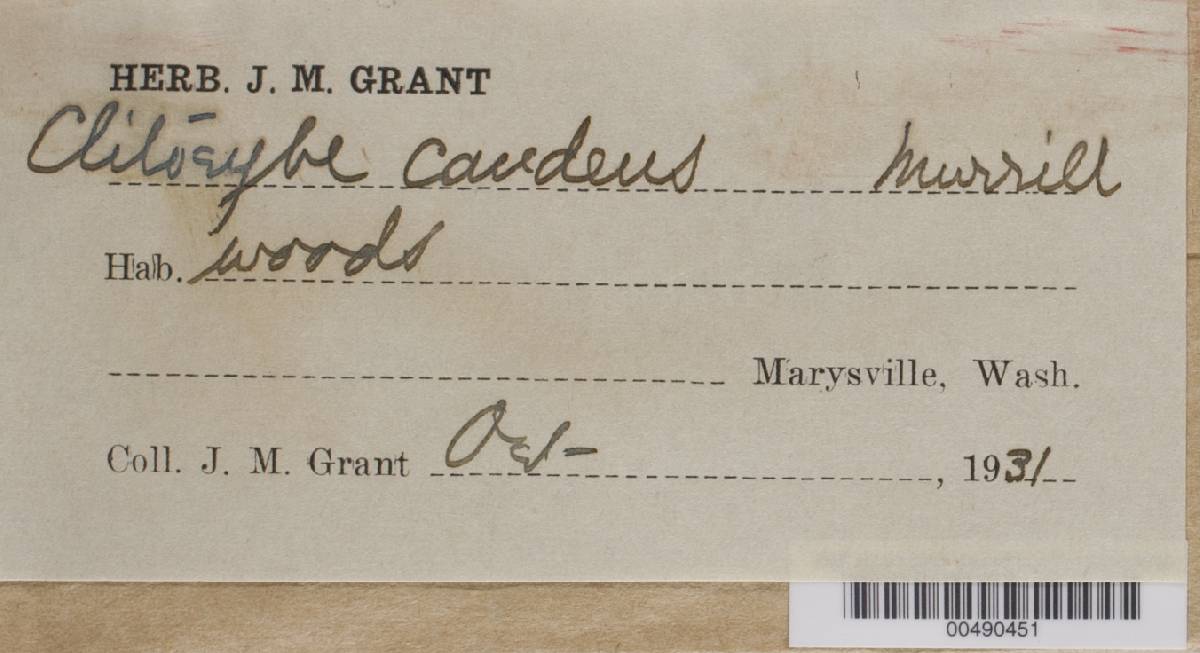 HERB. J. M. GRANT
Clitocybe candens Murrill
Hab. woods
Marysville, Wash.
Coll. J. M. Grant Oct- , 1931
00490451